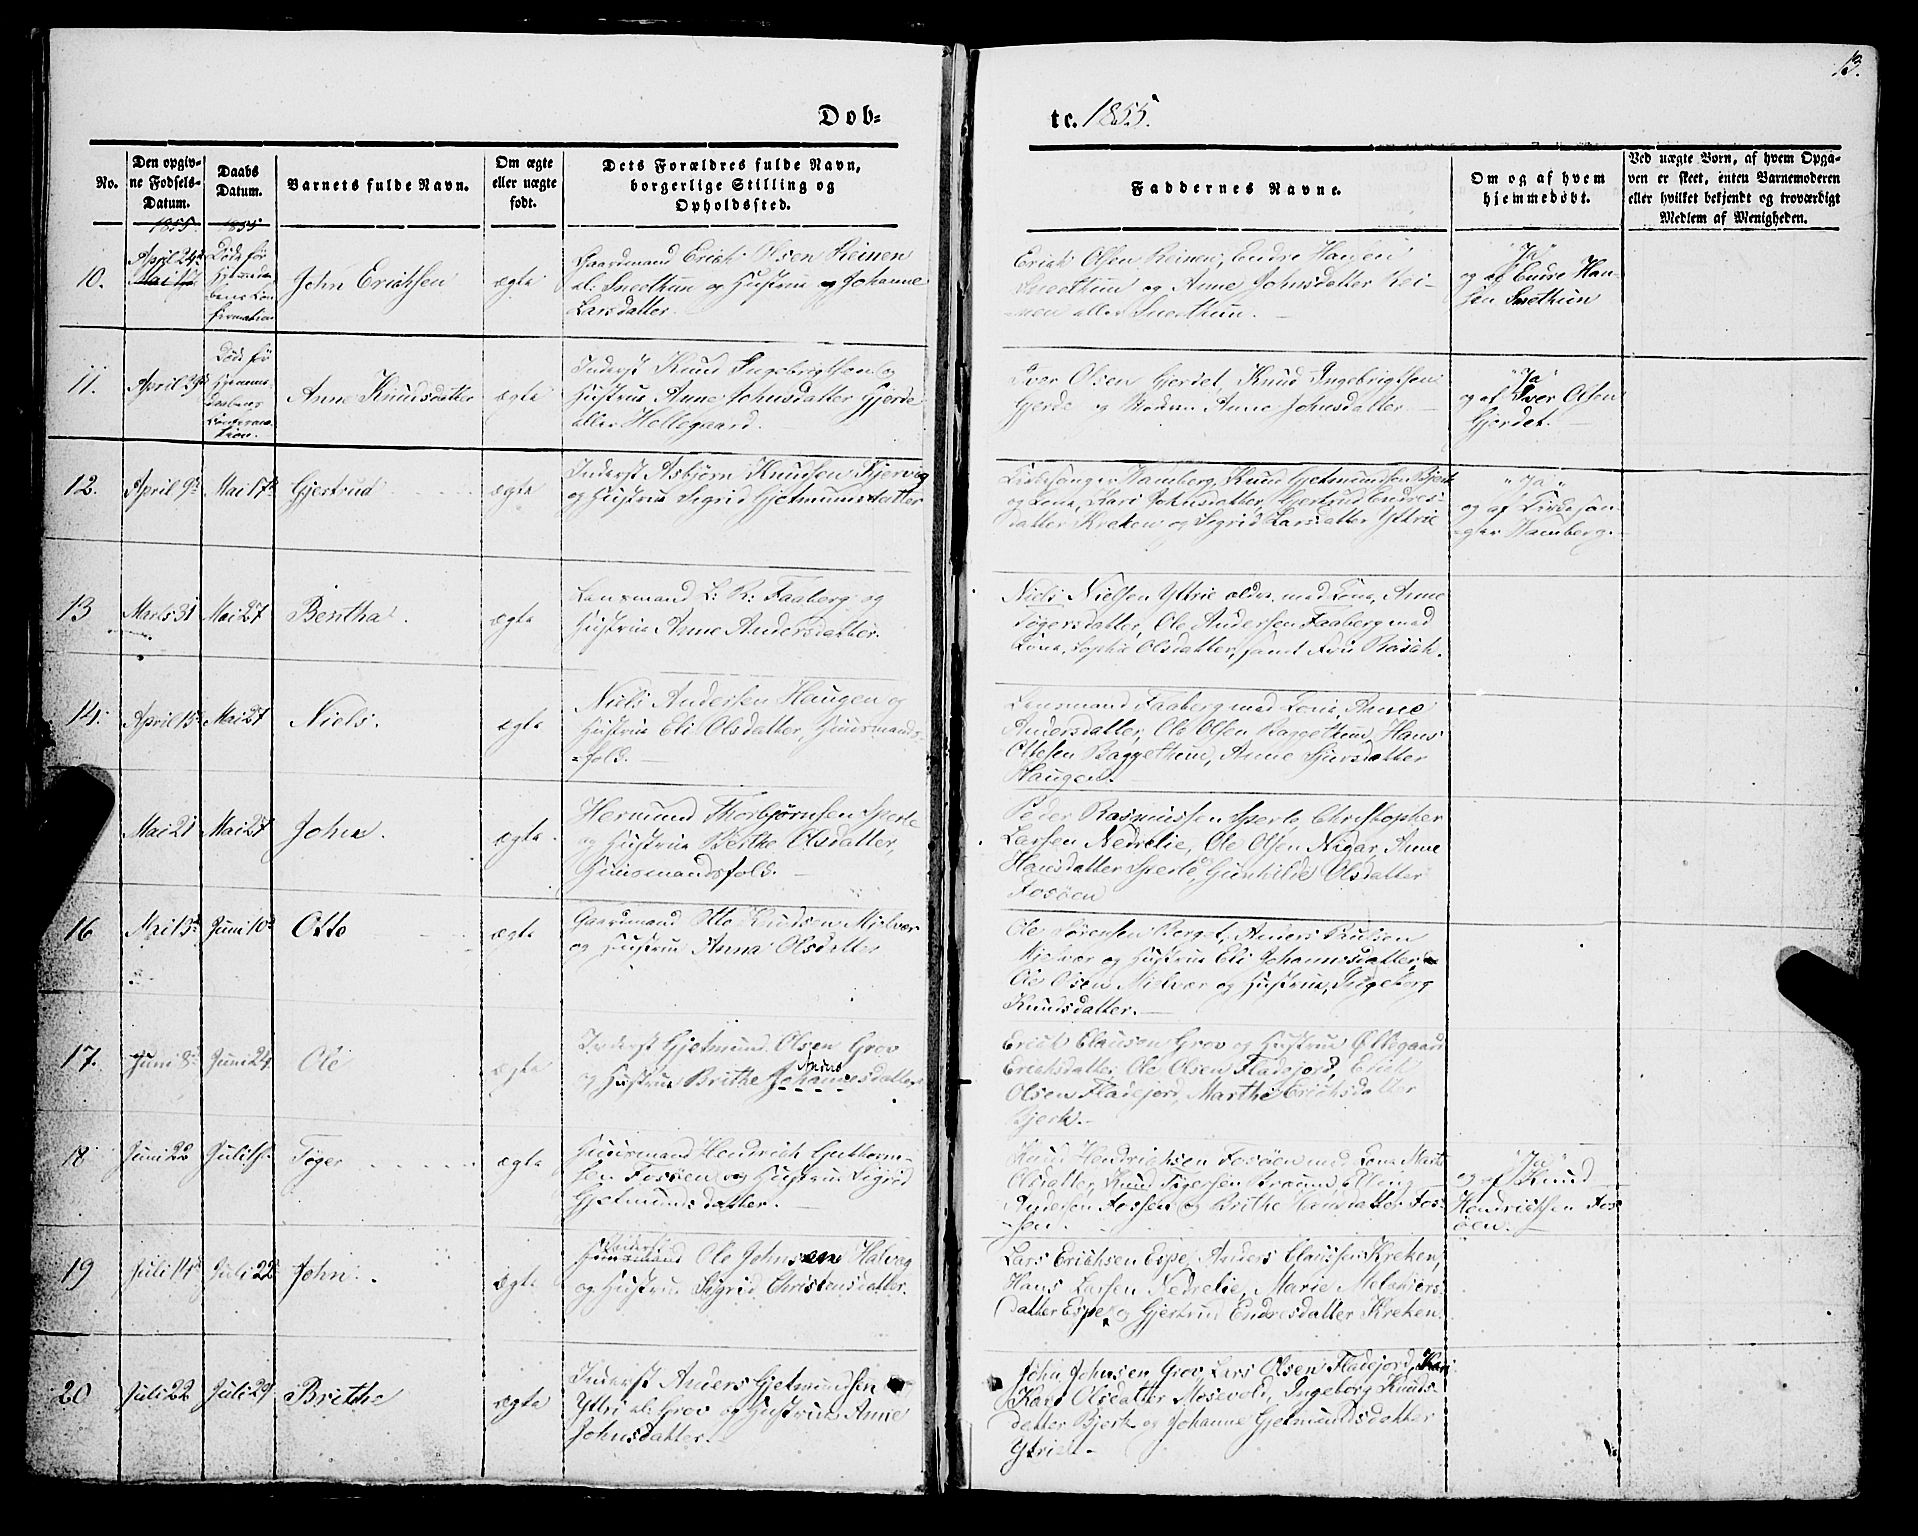 13.
Dob=
te. 1855.
No.
Den opgiv-
ne Fødsels-
Datum.
1855
Daabs
Datum.
1855
Barnets fulde Navn.
Om ægte
eller uægte
født.
Dets Forældres fulde Navn,
borgerlige Stilling og
Opholdssted.
Faddernes Navne.
Om og af hvem
hjemmedøbt.
Ved uægte Born, af hvem Opga-
ven er skeet, enten Barnemoderen
eller hvilket bekjendt og troværdigt
Medlem af Menigheden.
10.
April 24de
Døde før
Hjemmedaa-
bens Con-
firmation
John Erichsen
ægte
Gaardmand Erich Olsen Reinen
al: Snethun og Hustrue Johanne
Larsdatter.
Erich Olsen Reinen, Endre Hansen
Snethun og Anne Johnsdatter Rei-
nen eller Snethun.
"Ja"
og af Endre Han-
sen Snethun
11.
April
Døde før
Hjemme-
daabens
Confirma-
tion.
Anne Knudsdatter
ægte
Inderst Knud Ingebrigtsen og
Hustrue Anne Johnsdatter Gjerde
eller Hellegaard.
Iver Olsen Gjerdet, Knud Ingebrigtsen
Gjerde og Anne Johnsdatter.
"Ja"
og af Iver Olsen
Gjerdet.
12.
April 9de
Mai 17de
Gjertrud
ægte
Inderst Asbjørn Knudsen Kjervig
og Hustrue Sigrid Gjetmundsdatter
Kirkesanger Hamberg, Knud Gjetmundsen Bjerk
og Kone, Kari Johnsdatter, Gjertrud Endres-
datter Kreken og Sigrid Larsdatter Yttrie
"Ja"
og af Kirkesan-
ger Hamberg.
13
Marts 31
Mai 27
Bertha.
ægte
Lensmand L: R: Faaberg og
Hustrue Anne Andersdatter.
Niels Nielsen Yttrie ældre med Kone, Anne
Tøgersdatter, Ole Andersen Faaberg med
Kone, Sophie Olsdatter, samt Frue Rosch.
14.
April 15
Mai 27
Niels.
ægte
Niels Andersen Haugen og
Hustrue Eli Olsdatter, Huusmands-
fold.
Lensmand Faaberg med Kone, Anne
Andersdatter, Ole Olsen Baggethun, Hans
Ottesen Baggethun, Anne Sjursdatter
Haugen.
Mai 21
Mai 27
John.
ægte
Hermund Thorbjørnsen Sperle
og Hustrue Berthe Olsdatter,
Huusmandsfold.
Peder Rasmussen Sperle, Christopher
Larsen Nedrelie, Ole Olsen Nigar, Anne
Hansdatter Sperle, Gunhilde Olsdatter
Fosøen
16
Mai 13de
Juni 10de
Otto
ægte
Gaardmand Otto Knudsen Mjelvær
og Hustrue Anna Olsdatter
Ole Sørensen Berget, Anders
Mjelvær og Hustrue Eli Johannesdatter,
Ole Olsen Mjelvær og Hustrue, Ingeborg
Knudsdatter.
17.
Juni 8de
Juni 24
Ole
ægte
Inderst Gjetmund Olsen Grov
og Hustrue Brithe Johannesdatter
Erich Clauson Grov og Hustrue Øllegaard
Erichsdatter, Ole Olsen Fladejord, Erich
Olsen Fladejord, Marthe Erichsdatter
Bjerk.
18
Juni 22
Tøger
ægte
Huusmand Hendrich Guthorm-
sen Fosøen og Hustrue Sigrid
Gjetmundsdatter.
Knud Hendrichsen Fosøen med Kone Marte
Olsdatter, Knud Tøgersen
Andersen Fossen og Brithe Hansdatter Fos-
søen.
"Ja"
og af Knud
Hendrichsen Fos-
øen.
19
Juli 14de
Juli 22
John.
ægte
Inderst
Ole Johnsen Hatvag
og Hustrue Sigrid Christensdatter.
Lars Erichsen Espe, Anders Clausen Kreken,
Hans Larsen Nedrelie, Marie
datter Espe og Gjertrud Endresdatter Kreken.
20
Juli 22
Juli 29
Brithe
ægte
Inderst Anders Gjetmundsen
Yttri al: Grov og Hustrue Anne
Johnsdatter.
John Johnsen Grov, Lars Olsen Fladejord,
Kari Olsdatter Mosevold, Ingeborg Knuds-
datter Bjerk og Johanne Gjetmundsdatter
Ytrie.